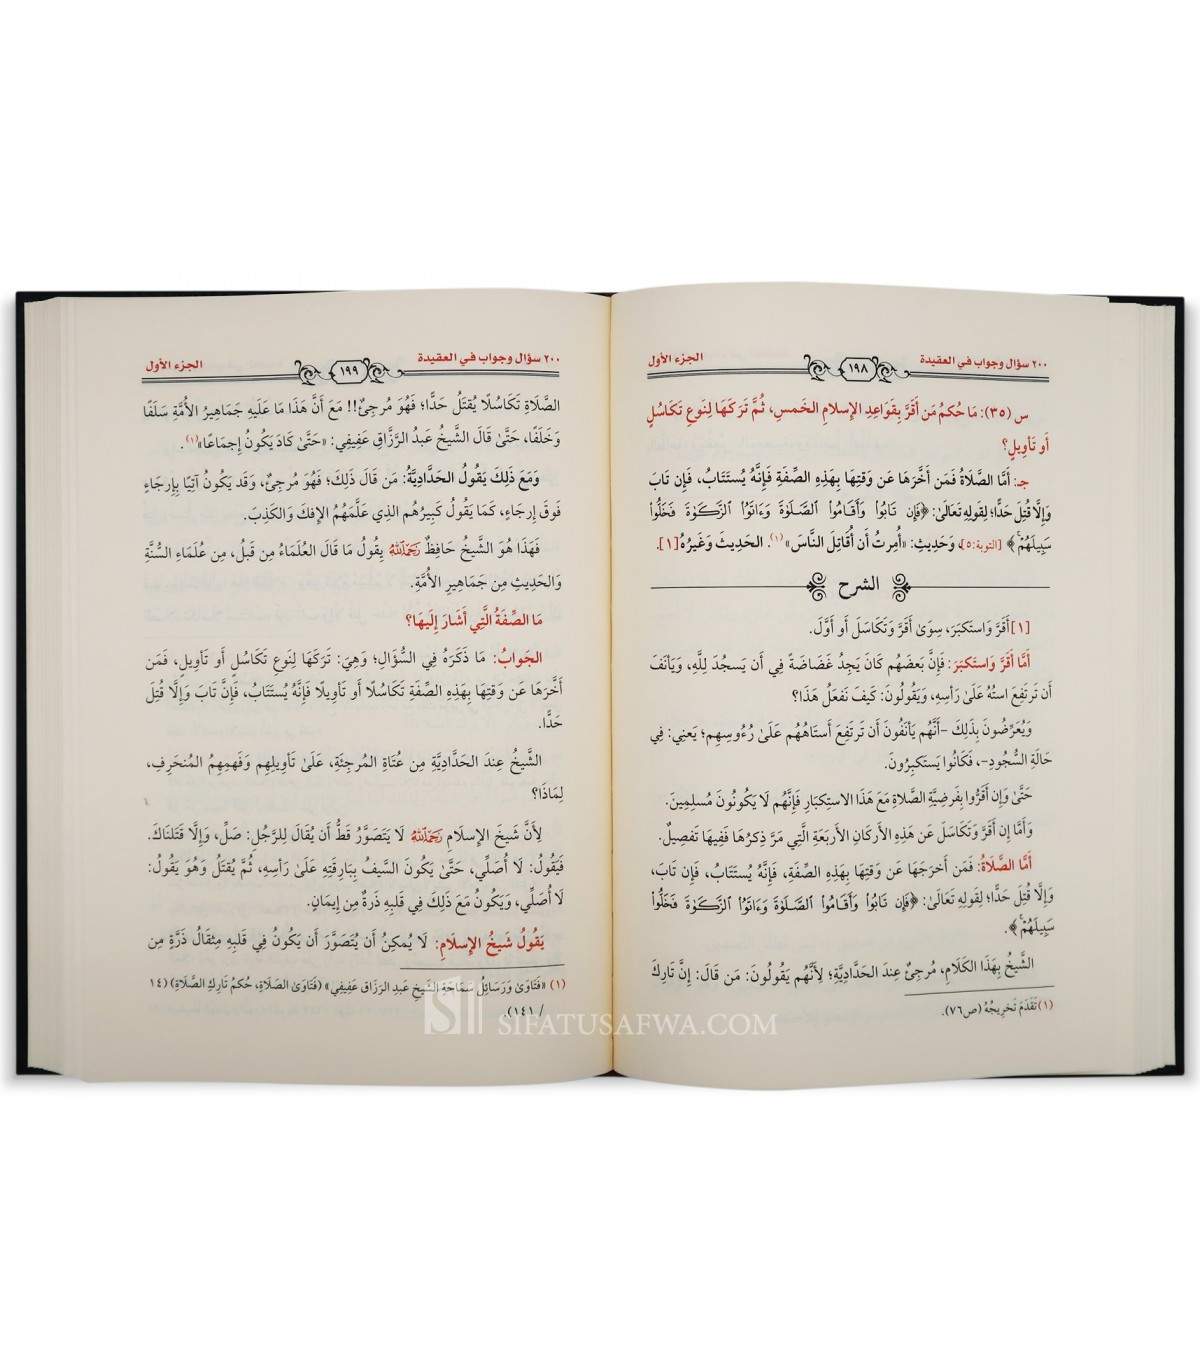 ٢٠٠ سؤال وجواب في العقيدة
١٩٨
الجزء الأول
س (٣٥): مَا حُكمُ مَن أَقَرَّ بِقَوَاعِدِ الإِسلَامِ الخَمسِ، ثُمَّ تَرَكَهَا لِنَوعِ تَكَاسُلٍ
أَو تَأوِيلٍ؟
جـ: أَمَّا الصَّلَاةُ فَمَن أَخَّرَهَا عَن وَقتِهَا بِهَذِهِ الصِّفَةِ فَإِنَّهُ يُستَتَابُ، فَإِن تَابَ
وَإِلَّا قُتِلَ حَدًّا؛ لِقَولِهِ تَعَالَىٰ: ﴿فَإِن تَابُواْ وَأَقَامُواْ ٱلصَّلَوٰةَ وَءَاتَوُاْ ٱلزَّكَوٰةَ فَخَلُّواْ
سَبِيلَهُمۡۚ﴾ [التوبة:٥]، وَحَدِيثِ: «أُمِرتُ أَن أُقَاتِلَ النَّاسَ»(١). الحَدِيثَ وَغَيرُهُ[١].
الشرح
[١] أَقَرَّ وَاستَكبَرَ، سِوَىٰ أَقَرَّ وَتَكَاسَلَ أَو أَوَّلَ.
أَمَّا أَقَرَّ وَاستَكبَرَ: فَإِنَّ بَعضَهُم كَانَ يَجِدُ غَضَاضَةً فِي أَن يَسجُدَ لِلَّهِ، وَيَأنَفَ
أَن تَرتَفِعَ استُهُ عَلَىٰ رَأسِهِ، وَيَقُولُونَ: كَيفَ نَفعَلُ هَذَا؟
وَيُعَرِّضُونَ بِذَلِكَ -أَنَّهُم يَأنَفُونَ أَن تَرتَفِعَ أَستَاهُهُم عَلَىٰ رُءُوسِهِم؛ يَعنِي: فِي
حَالَةِ السُّجُودِ-، فَكَانُوا يَستَكبِرُونَ.
حَتَّىٰ وَإِن أَقَرُّوا بِفَرضِيَّةِ الصَّلَاةِ مَعَ هَذَا الاستِكبَارِ فَإِنَّهُم لَا يَكُونُونَ مُسلِمِينَ.
وَأَمَّا إِن أَقَرَّ وَتَكَاسَلَ عَن هَذِهِ الأَركَانِ الأَربَعَةِ الَّتِي مَرَّ ذِكرُهَا فَفِيهَا تَفصِيلٌ.
أَمَّا الصَّلَاةُ: فَمَن أَخرَجَهَا عَن وَقتِهَا بِهَذِهِ الصِّفَةِ، فَإِنَّهُ يُستَتَابُ، فَإِن تَابَ،
وَإِلَّا قُتِلَ حَدًّا؛ لِقَولِهِ تَعَالَىٰ: ﴿فَإِن تَابُواْ وَأَقَامُواْ ٱلصَّلَوٰةَ وَءَاتَوُاْ ٱلزَّكَوٰةَ فَخَلُّواْ
سَبِيلَهُمۡۚ﴾.
الشَّيخُ بِهَذَا الكَلَامِ، مُرجِئٌ عِندَ الحَدَّادِيَّةِ؛ لِأَنَّهُم يَقُولُونَ: مَن قَالَ: إِنَّ تَارِكَ
(١) تَقَدَّمَ تَخرِيجُهُ (ص٧٦).
٢٠٠ سؤال وجواب في العقيدة
١٩٩
الجزء الأول
الصَّلَاةِ تَكَاسُلًا يُقتَلُ حَدًّا؛ فَهُوَ مُرجِئٌ!! مَعَ أَنَّ هَذَا مَا عَلَيهِ جَمَاهِيرُ الأُمَّةِ سَلَفًا
وَخَلَفًا، حَتَّىٰ قَالَ الشَّيخُ عَبدُ الرَّزَّاقِ عَفِيفِي: «حَتَّىٰ كَادَ يَكُونُ إِجمَاعًا»(١).
وَمَعَ ذَلِكَ يَقُولُ الحَدَّادِيَّةُ: مَن قَالَ ذَلِكَ؛ فَهُوَ مُرجِئٌ، وَقَد يَكُونُ آتِيًا بِإِرجَاءٍ
فَوقَ إِرجَاءٍ، كَمَا يَقُولُ كَبِيرُهُم الذِي عَلَّمَهُمُ الإِفكَ وَالكَذِبَ.
فَهَذَا هُوَ الشَّيخُ حَافِظٌ رَحِمَهُ اللهُ يِقُولُ مَا قَالَ العُلَمَاءُ مِن قَبلُ، مِن عُلَمَاءِ السُّنَّةِ
وَالحَدِيثِ مِن جَمَاهِيرِ الأُمَّةِ.
مَا الصِّفَةُ الَّتِي أَشَارَ إِلَيهَا؟
الجَوَابُ: مَا ذَكَرَهُ فِي السُّؤَالِ؛ وَهِيَ: تَرَكَهَا لِنَوعِ تَكَاسُلٍ أَو تَأوِيلٍ، فَمَن
أَخَّرَهَا عَن وَقتِهَا بِهَذِهِ الصِّفَةِ تَكَاسُلًا أَو تَأوِيلًا فَإِنَّهُ يُستَتَابُ، فَإِن تَابَ وَإِلَّا قُتِلَ
حَدًّا.
الشَّيخُ عِندَ الحَدَّادِيَّةِ مِن عُتَاةِ المُرجِئَةِ، عَلَىٰ تَأوِيلِهِم وَفَهمِهِمُ المُنحَرِفِ،
لِمَاذَا؟
لِأَنَّ شَيخَ الإِسلَامِ رَحِمَهُ اللهُ لَا يَتَصَوَّرُ قَطُّ أَن يُقَالَ لِلرَّجُلِ: صَلِّ، وَإِلَّا قَتَلنَاكَ.
فَيَقُولُ: لَا أُصَلِّي، حَتَّىٰ يَكُونَ السَّيفُ بِبَارِقَتِهِ عَلَىٰ رَأسِهِ، ثُمَّ يُقتَلُ وَهُوَ يَقُولُ:
لَا أُصَلِّي، وَيَكُونُ مَعَ ذَلِكَ فِي قَلبِهِ ذَرةٌ مِن إِيمَانٍ.
يَقُولُ شَيخُ الإِسلَامِ: لَا يُمكِنُ أَن يُتَصَوَّرَ أَن يَكُونُ فِي قَلبِهِ مِثقَالُ ذَرَّةٍ مِن
(١) «فَتَاوَىٰ وَرَسَائِلُ سَمَاحَةِ الشَّيخِ عَبدِ الرَزَاق عَفِيفِي» (فَتَاوَىٰ الصَلَاةِ، حُكمُ تَارِكِ الصَّلَاةِ) (١٤
/ ١٤١).
SIFATUSAFWA.COM